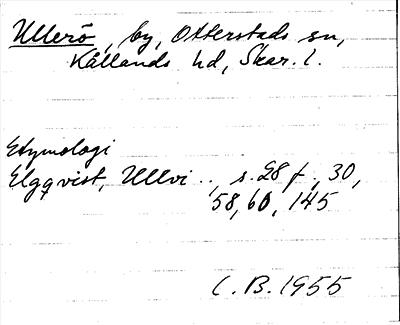 Ullerö, by, Otterstads sn,
Kållands hd, Skar. l.
Etymologi
Elgqvist, Ullvi.., s. 28 f., 30,
58, 60, 145
C. B. 1955